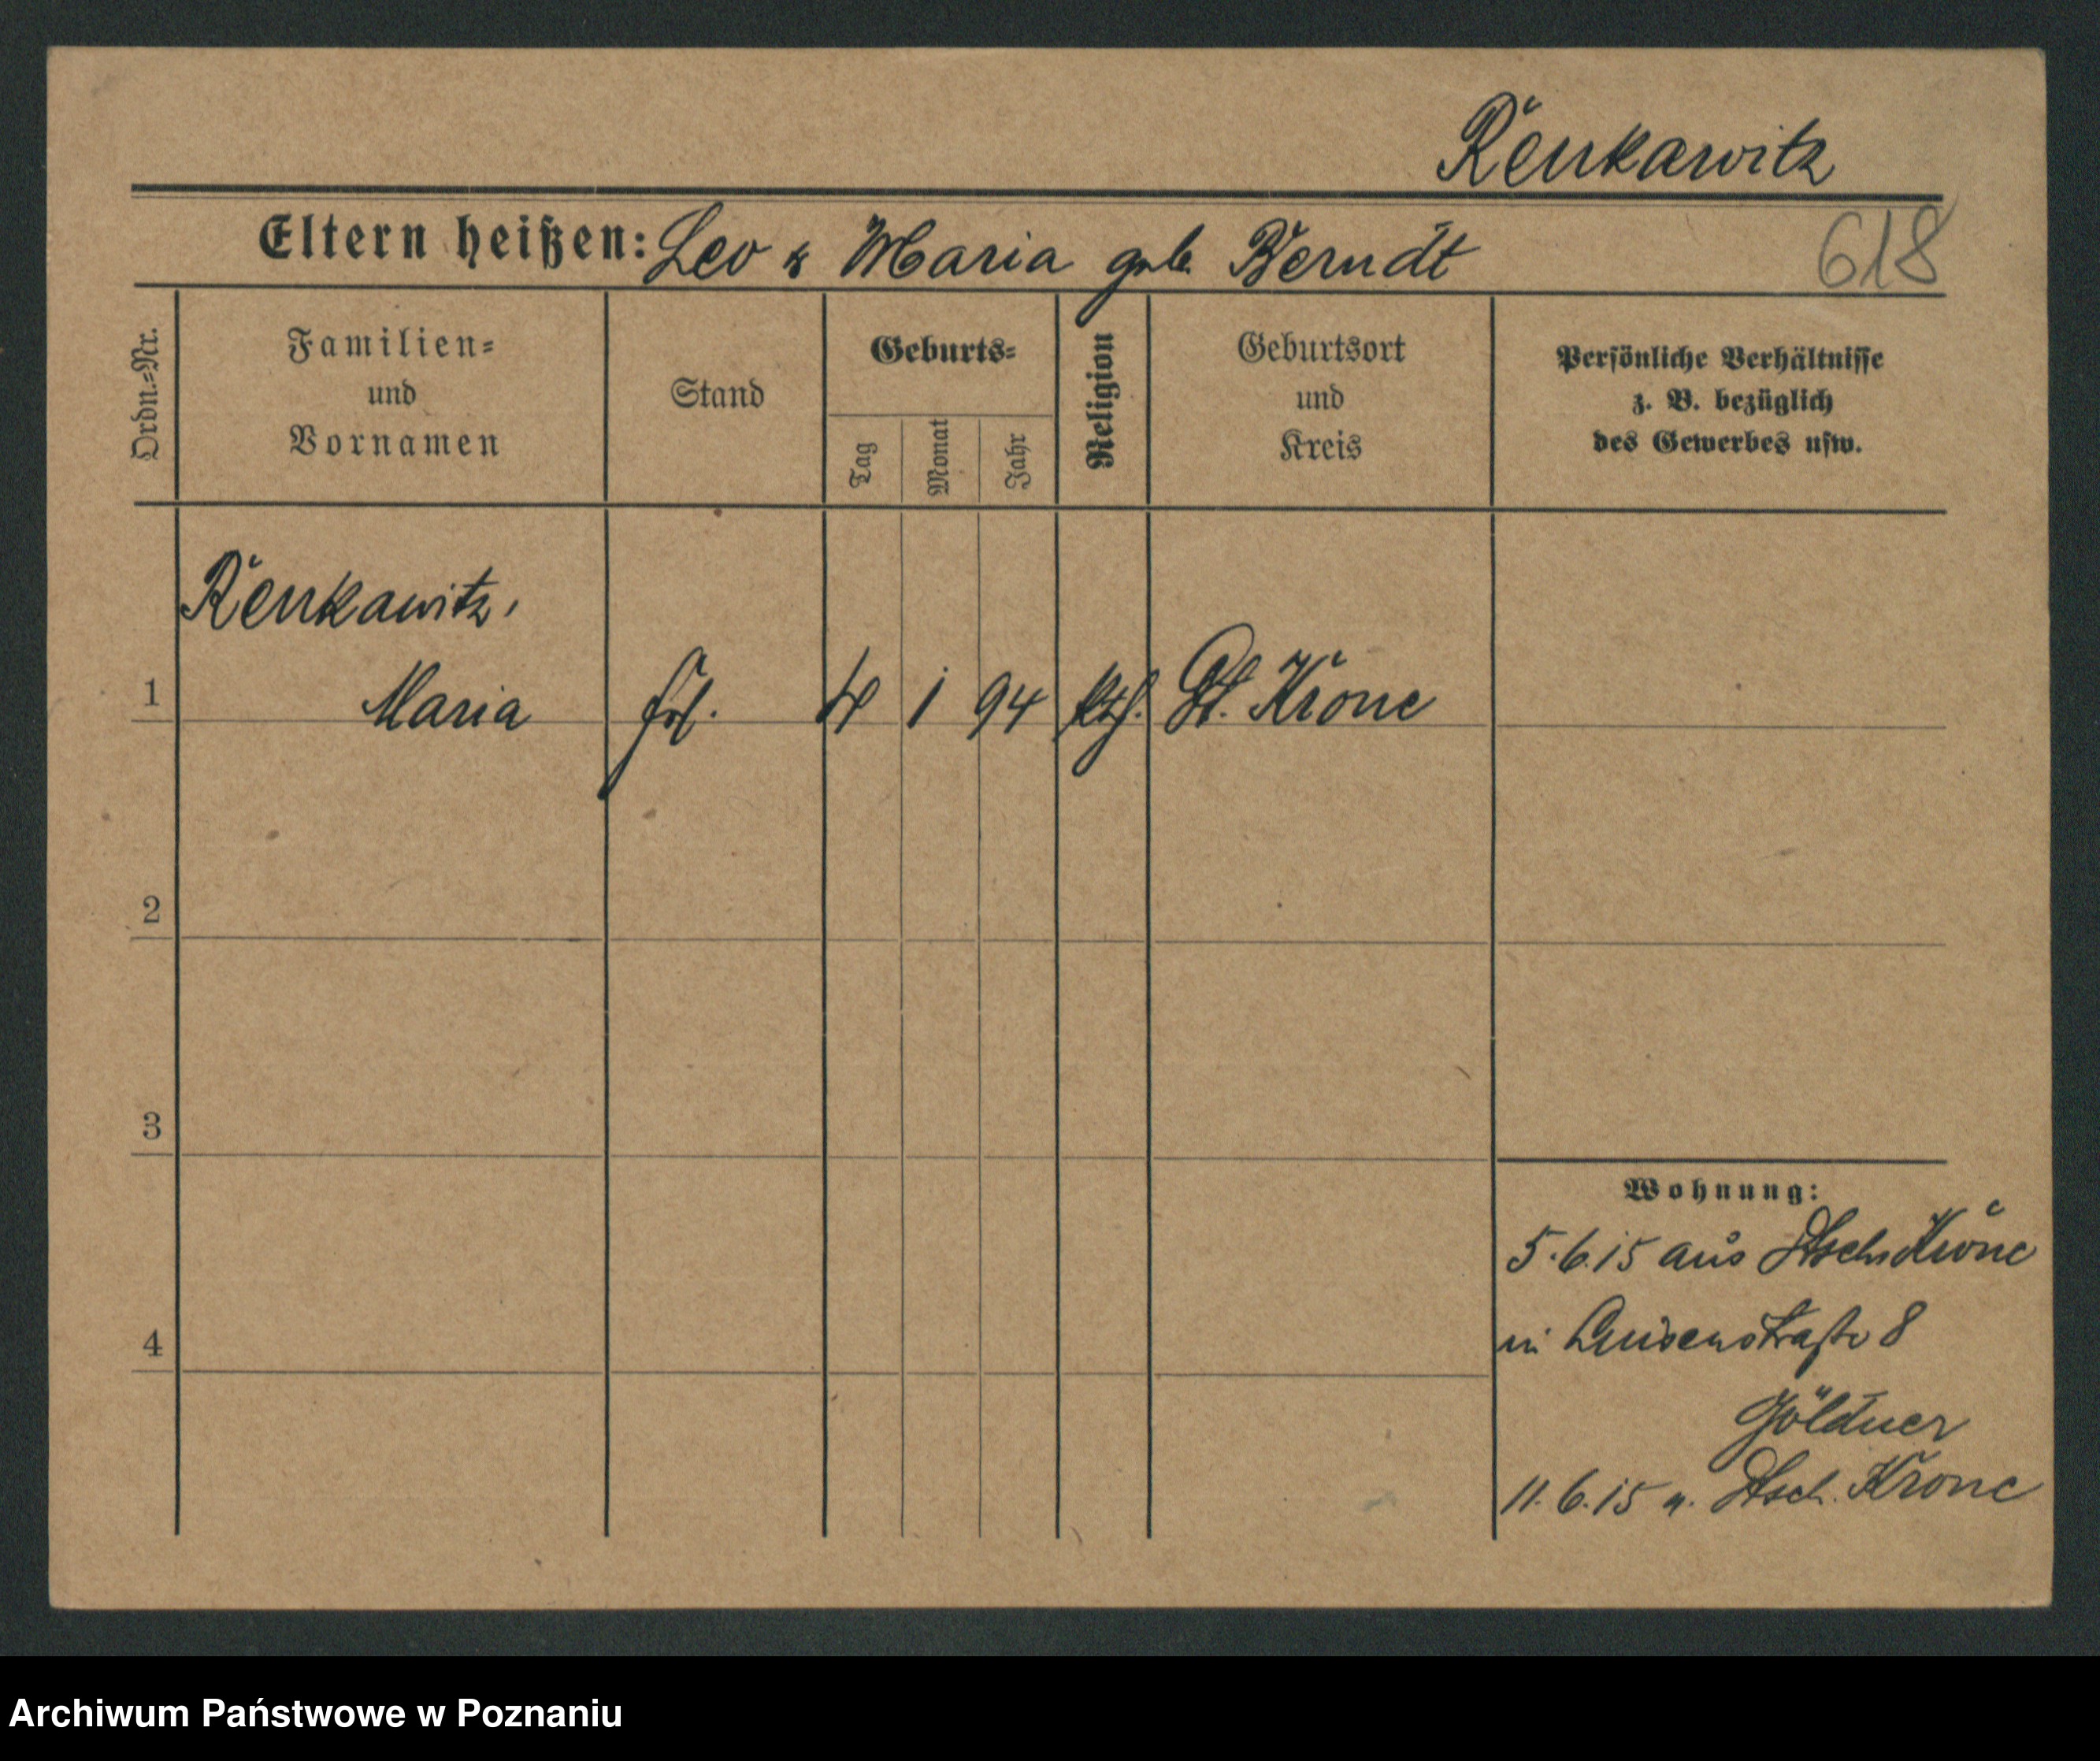 Renkawitz
Eltern heißen: Leo & Maria geb. Berndt
618
Ordn.=Nr.
Familien=
und
Vornamen
Stand
Geburts=
Tag
Monat
Jahr
Religion
Geburtsort
und
Kreis
Persönliche Verhältnisse
z. B. bezüglich
des Gewerbes usw.
Renkawitz,
1 Maria Frl. 4 1 94 kth. Dt. Krone
2
3
4
Wohnung:
5.6.15 aus Dtsch Krone
in Luisenstraße 8
Göldner
11.6.15 n. Dtsch. Krone
Archiwum Państwowe w Poznaniu